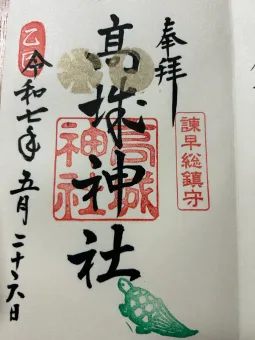 奉拝
諫早総鎮守
高城神社
高城神社
乙巳
令和七年五月二十六日